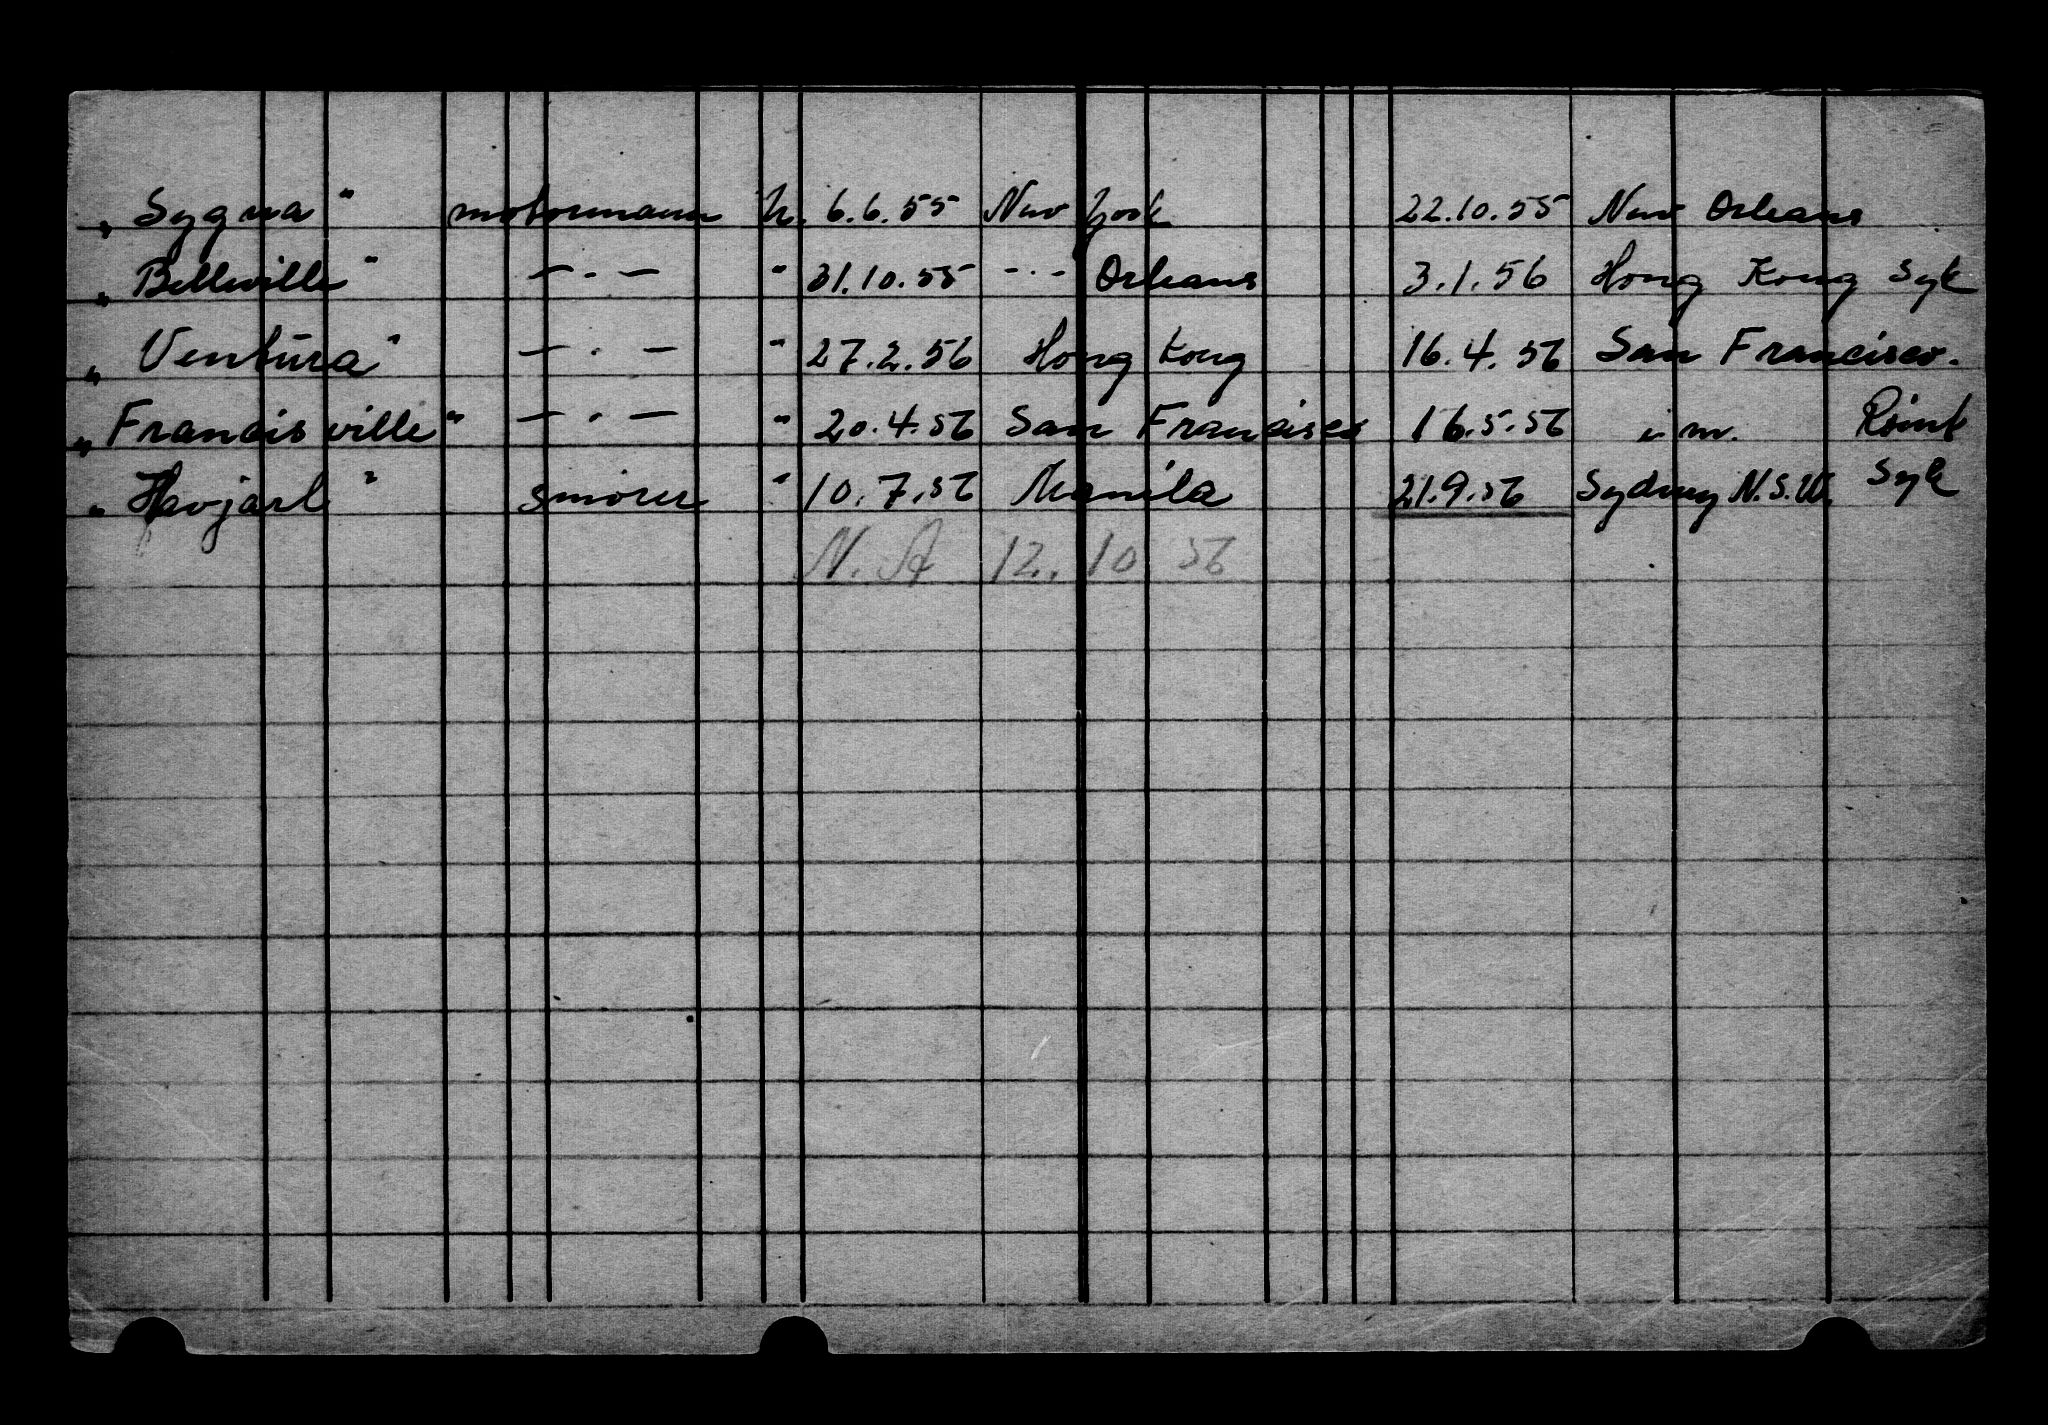 „Sygna" motormann h. 6.6.55 New York 22.10.55 New Orleans
„Belleville" —·— " 31.10.55 -·- Orleans 3.1.56 Hong Kong Syk
„Ventura" —·— " 27.2.56 Hong Kong 16.4.56 San Francisco.
„Francisville" —·— " 20.4.56 San Francisco 16.5.56 i. m. Rømt
„Havjarl" smører " 10.7.56 Manila 21.9.56 Sydney N.S.W. Syk
N. A 12. 10 56